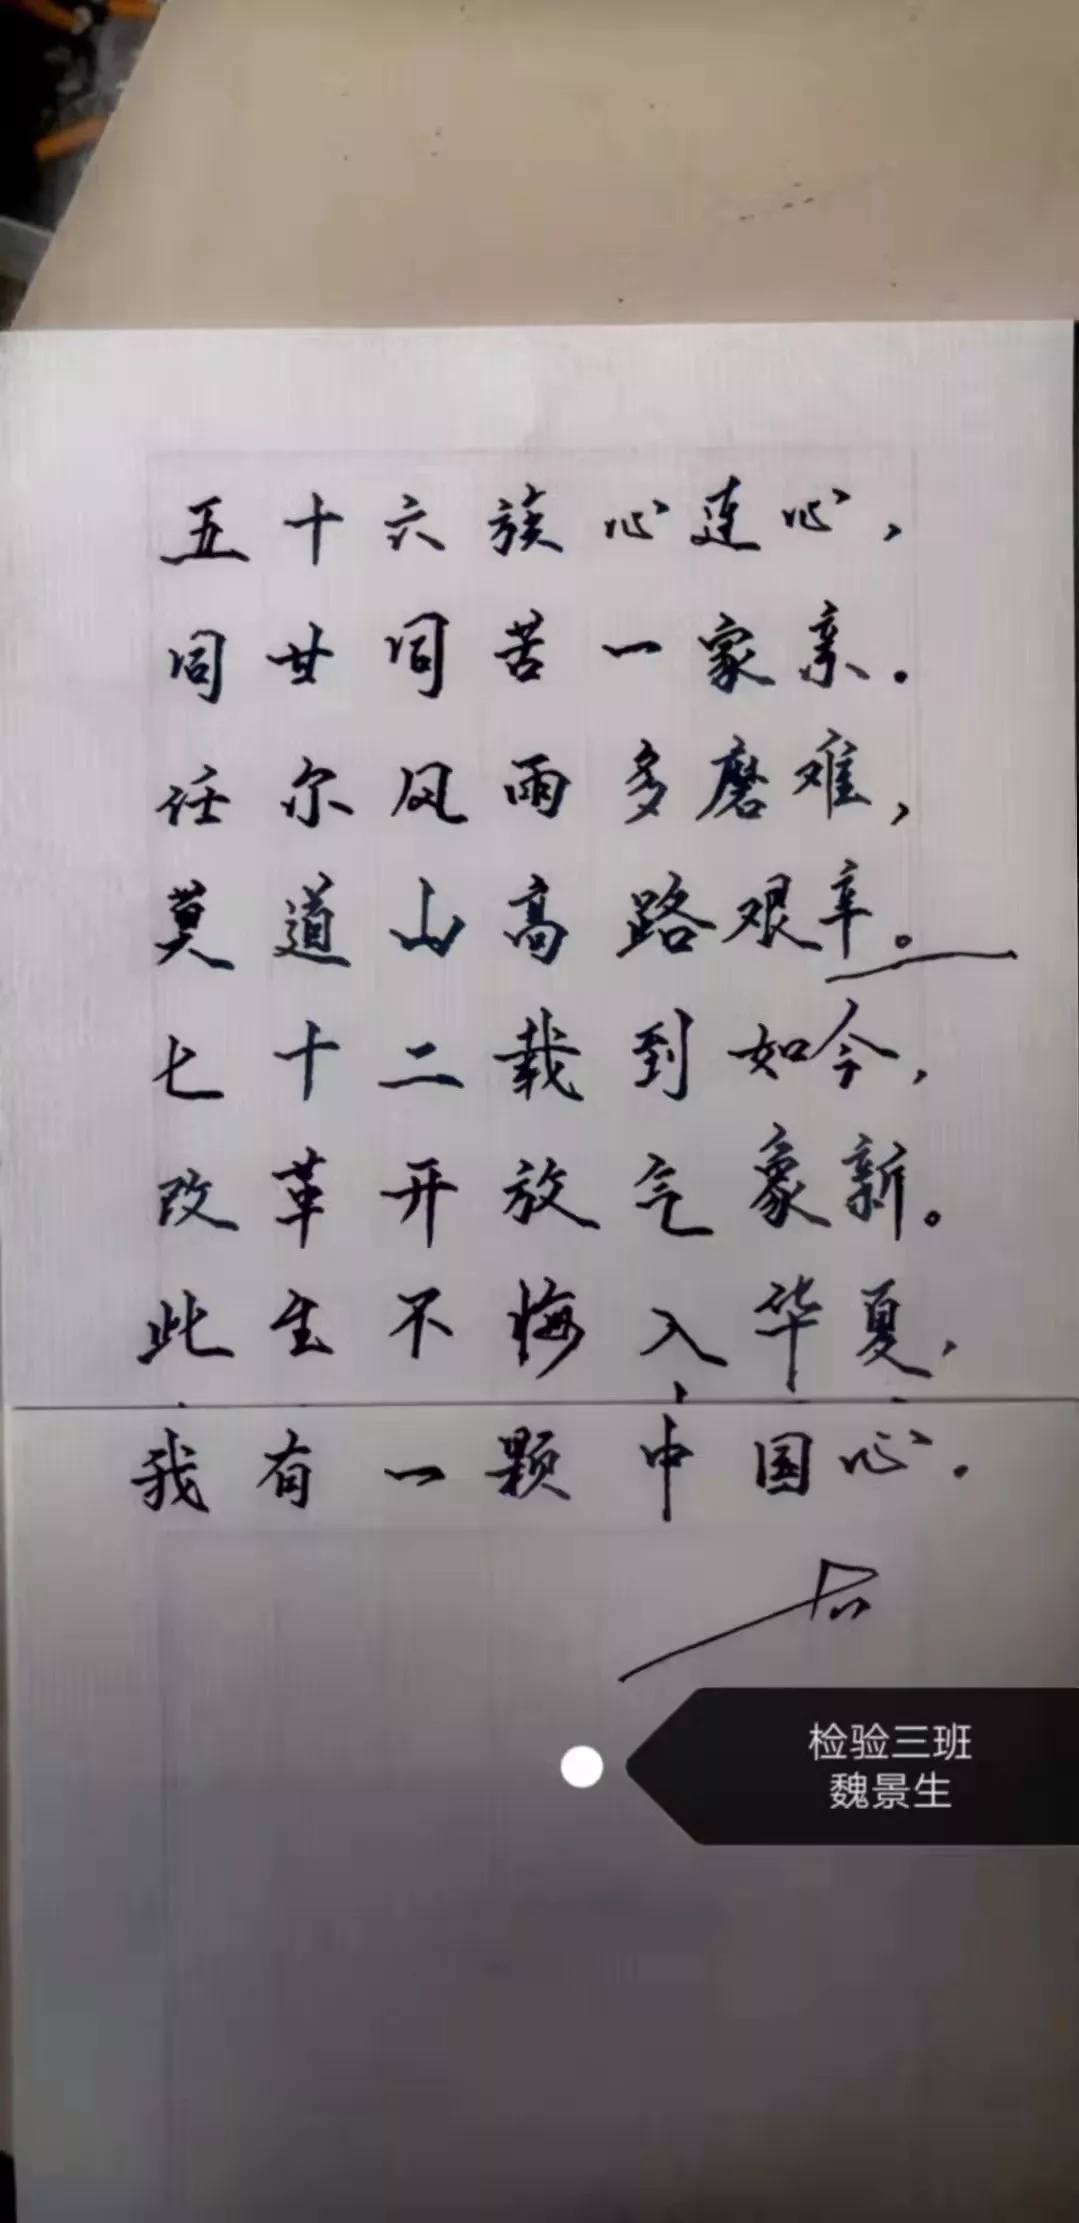 五十六族心连心，
同甘同苦一家亲．
任尔风雨多磨难，
莫道山高路艰辛。
七十二载到如今，
改革开放气象新。
此生不悔入华夏，
我有一颗中国心．
检验三班
魏景生